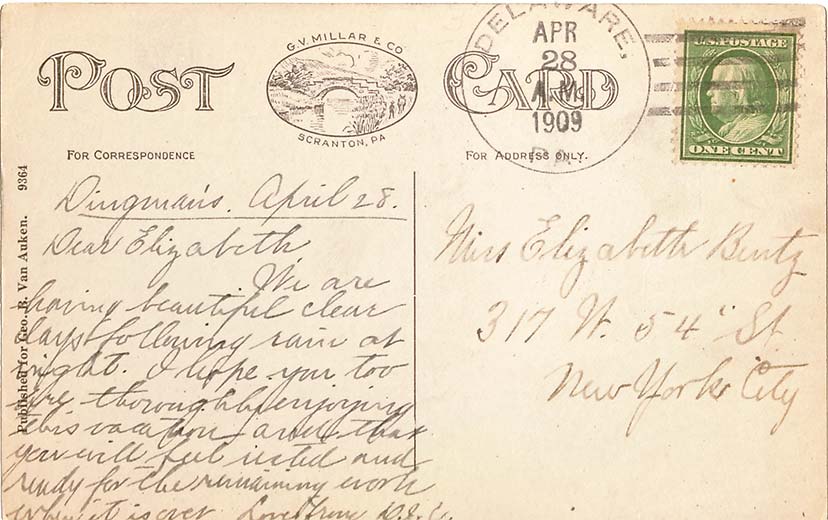 POST CARD
G.V. MILLAR & CO
SCRANTON, PA.
DELAWARE,
APR
28
A.M.
1909
PA.
U.S. POSTAGE
ONE CENT
FOR CORRESPONDENCE
FOR ADDRESS ONLY.
9364
Published for Geo. E. Van Auken.
Dingman's. April 28.
Dear Elizabeth
We are
having beautiful clear
days following rain at
night. I hope you too
are thoroughly enjoying
this vacation and that
you will feel rested and
ready for the remaining work
when it is over. Love from
Miss Elizabeth Bentz
317 W. 54" St
New York City